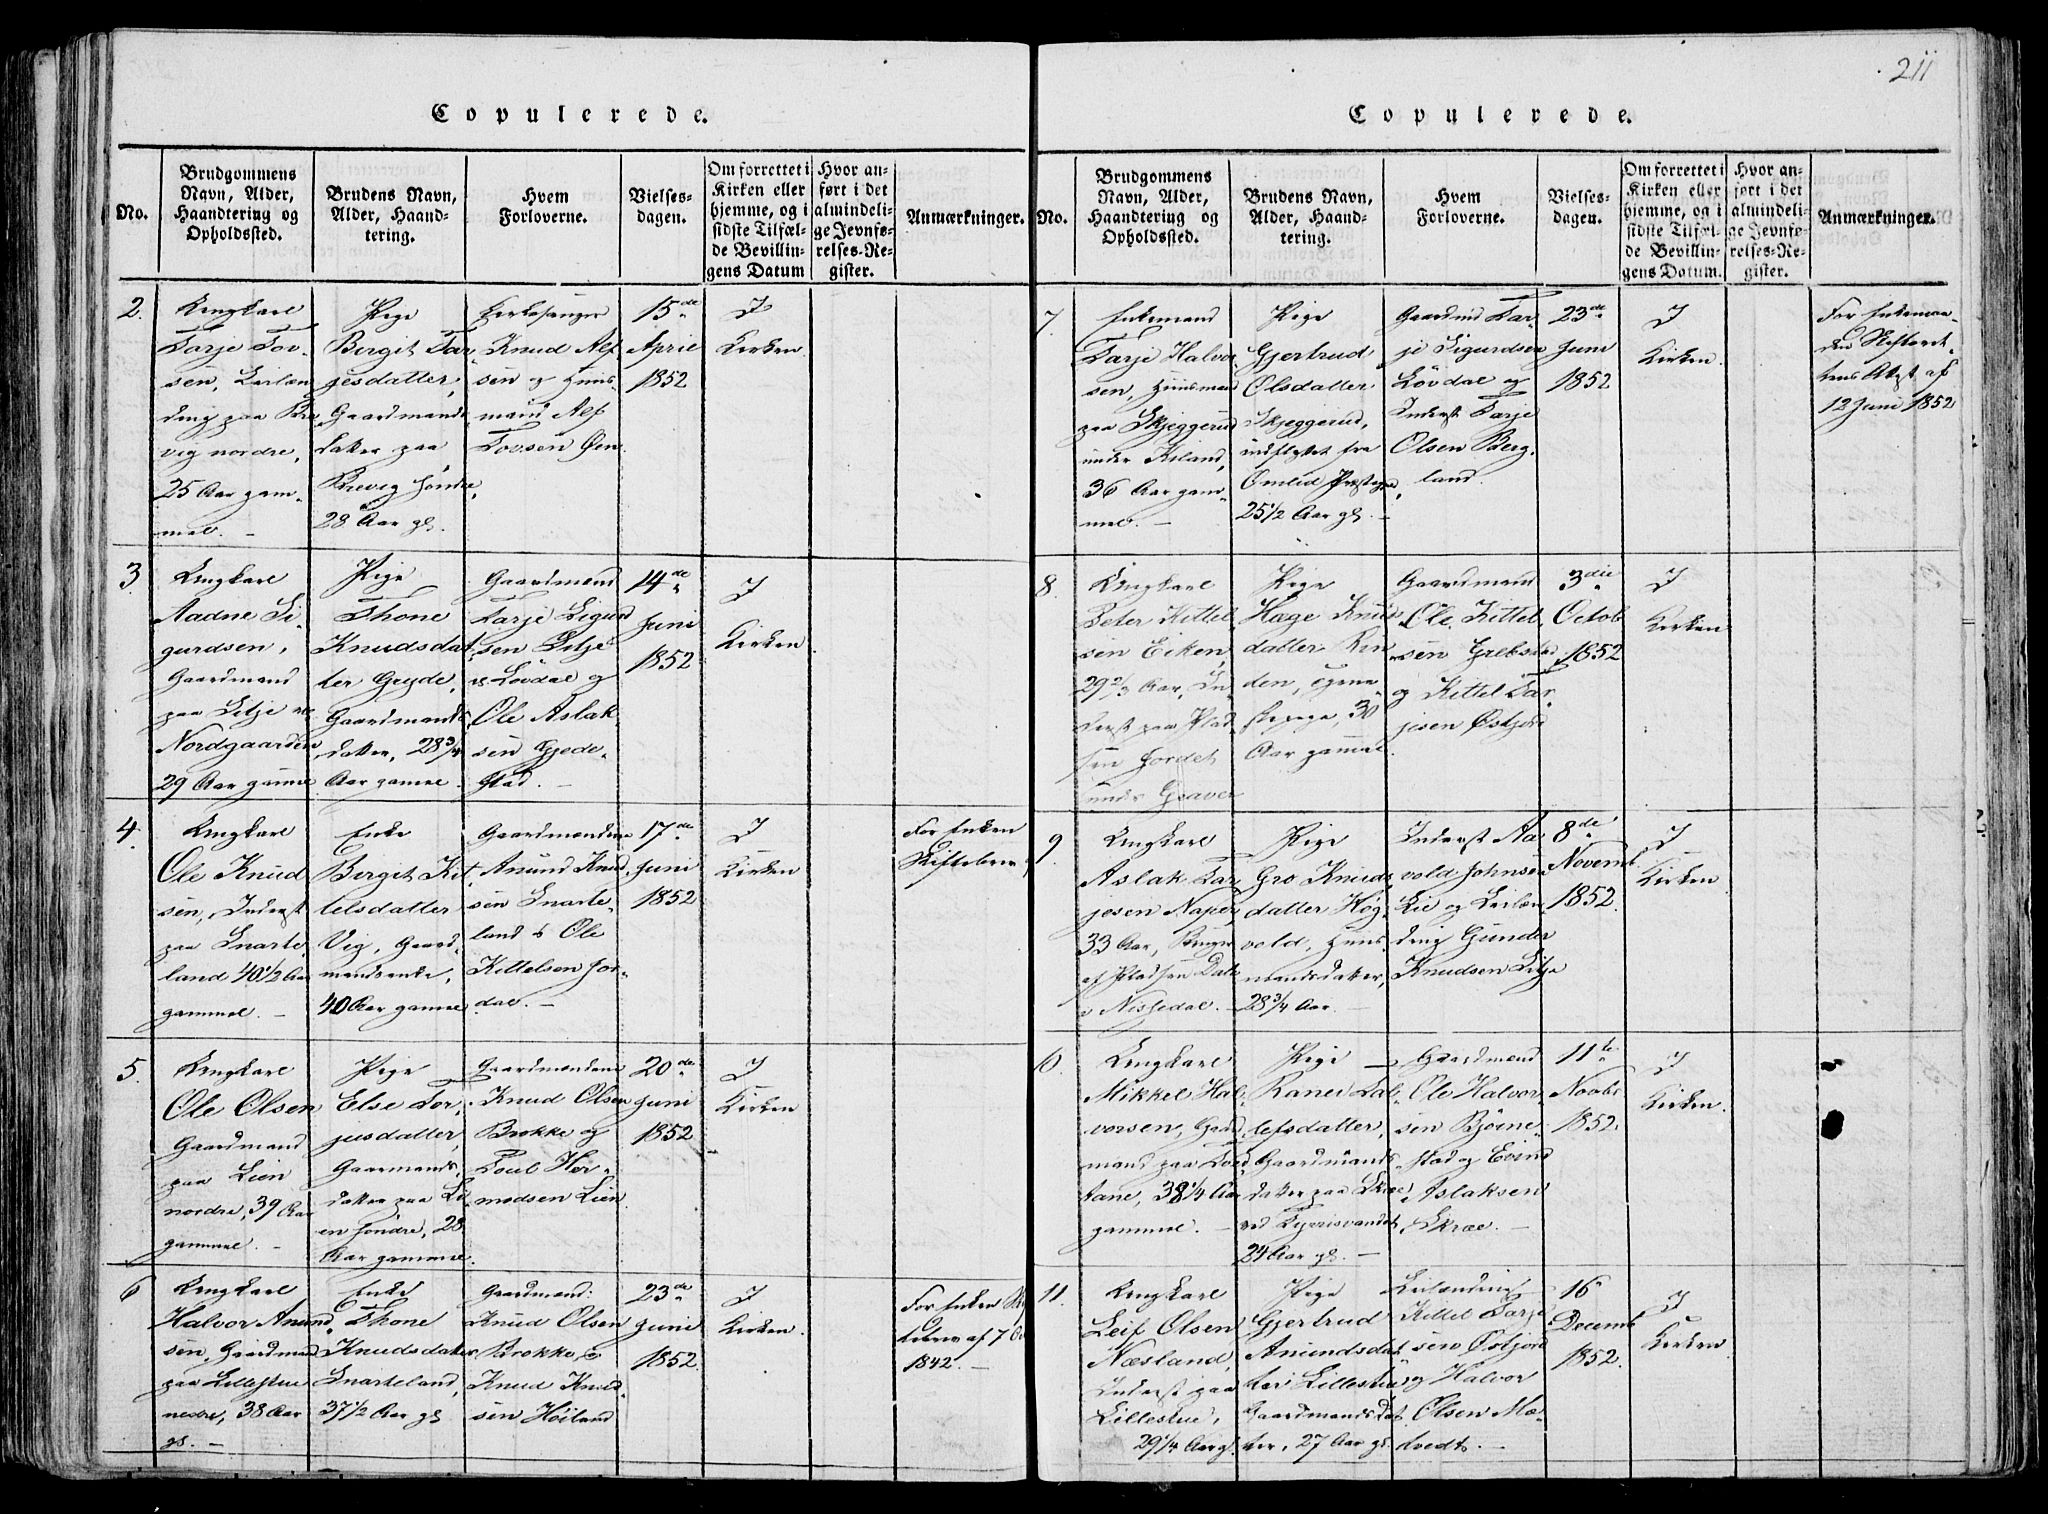 211
Copulerede.
No.
Brudgommens
Navn, Alder,
Haandtering og
Opholdssted.
Brudens Navn,
Alder, Haand-
tering.
Hvem
Forloverne.
Vielses-
dagen.
Om forrettet i
Kirken eller
hjemme, og i
sidste Tilfæl-
de Bevillin-
gens Datum
Hvor an-
ført i det
almindeli-
ge Jevnfø-
relses-Re-
gister.
Anmærkninger.
2.
Ungkarl
Tarje Tov-
sen, Leilæn-
ding paa
vig nordre,
25 Aar gam-
mel.
Pige
Birgit Tar-
jesdatter,
Gaardmands
datter paa
søndre,
28 Aar gl.
Kirkesanger
Knud Alf
sen og Huus-
mand Alf
Tovsen Øen
15de
April
1852
I
Kirken
3
Ungkarl
Aadne Si-
gurdsen,
Gaardmand
paa Litje
Nordgaarden
29 Aar gammel
Pige
Thone
Knudsdat
ter
Gaardmands
datter, 28 3/4
Aar gammel
Gaardmænd
Tarje Sigurd
sen Litje
Løvdal og
Ole Aslak
sen Gjede-
stad.
14de
Juni
1852
I
Kirken
4.
Ungkarl
Ole Knud
sen, Inderst
paa Snarte
land 40 1/2 Aar
gammel.
Enke
Birgit Kit
telsdatter
Vig, Gaard-
mandsenke,
40 Aar gammel
Gaardmændene
Anund Knud
sen Snarte-
land & Ole
Kittelsen For-
dal.
17de
Juni
1852
I
Kirken
For Enken
Skiftebrev
5.
Ungkarl
Ole Olsen
Gaardmand
paa Lien
nordre, 39 Aar
gammel.
Pige
Else Tor-
jusdatter,
Gaarmands-
datter paa Li-
en søndre, 28
Aar gammel.
Gaardmændene
Knud Olsen
Brokke og
Poul Her-
modsen Lien
20de
Juni
1852
I
Kirken
6
Ungkarl
Halvor Anund
sen, Gaardmand
paa Lillestue
nedre, 38 Aar
gl.
Enke
Thone
Knudsdatter
Snarteland,
37 1/2 Aar gl
Gaardmænd:
Knud Olsen
Brokke, og
Knud Knud-
sen Høiland
23de
Juni
1852.
I
Kirken.
For Enken
af 7
1842.
Copulerede.
No.
Brudgommens
Navn, Alder,
Haandtering og
Opholdssted.
Brudens Navn,
Alder, Haand-
tering.
Hvem
Forloverne.
Vielses-
dagen.
Om forrettet i
Kirken eller
hjemme, og i
sidste Tilfæl-
de Bevillin-
gens Datum.
Hvor an-
ført i det
almindeli-
ge Jevnfø-
relses-Re-
gister.
Anmærkninger.
7.
Enkemand
Tarje Halvor
sen, Huusmand
paa Skjeggerud
under Kiland,
36 Aar gam-
mel.
Pige
Gjertrud
Olsdatter
Skjeggerud,
indflyttet fra
Omlid Præstegjeld,
25 1/2 Aar gl.
Gaardmd Tar-
je Sigurdsen
Løvdal og
Inderst Tarje
Olsen Berg-
land.
23de
Juni
1852
I
Kirken.
For Enkeman-
den Skifteret-
tens Attest af
12 Juni 1852
8.
Ungkarl
Peter Kittel
sen Eiken,
29 2/3 Aar, In-
derst paa Plad
sen Jordet
under Graver
Pige
Hæge Knuds
datter
den,
30
Aar gammel
Gaardmænd
Ole Kittel
sen Grebstad
og Kittel Tar-
jesen Østjord
3die
Octob
1852
I
Kirken
9.
Ungkarl
Aslak Tar
jesen Naper
33 Aar, Bruger
af Pladsen Dale
i Nissedal.
Pige
Gro Knuds
datter Høg-
vold, Huus
mandsdatter,
28 3/4 Aar.
Inderst Aa
vold Johnsen
Lie og Leilæn-
ding Gunder
Knudsen Litje
8de
Novemb
1852.
I
Kirken
10.
Ungkarl
Mikkel Hal-
vorsen, Gaard
mand paa Tved
tane, 38 1/4 Aar
gammel.
Pige
Ranei Dal-
lefsdatter,
Gaardmands
datter paa Skræ,
ved Kjerisvandet
24 Aar gl.
Gaardmænd
Ole Halvor-
sen Bjørne-
stad og Evind
Aslaksen
Skræe.
11te
Novbr
1852.
I
Kirken.
11.
Ungkarl
Leif Olsen
Næsland,
Inderst paa
Lillestue,
29 1/4 Aar gl.
Pige
Gjertrud
Anundsdat
ter Lillestue
Gaardmandsdat
ter, 27 Aar gl.
Leilænding
Kittel Tarje
sen Østjord
og Halvor
Olsen Mæ-
tvedt.
16
Decemb
1852.
I
Kirken